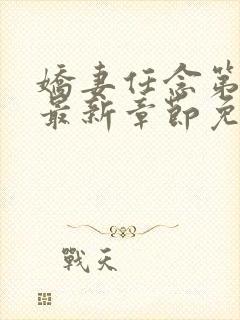 嬌妻任念第
最新章節免
戰天